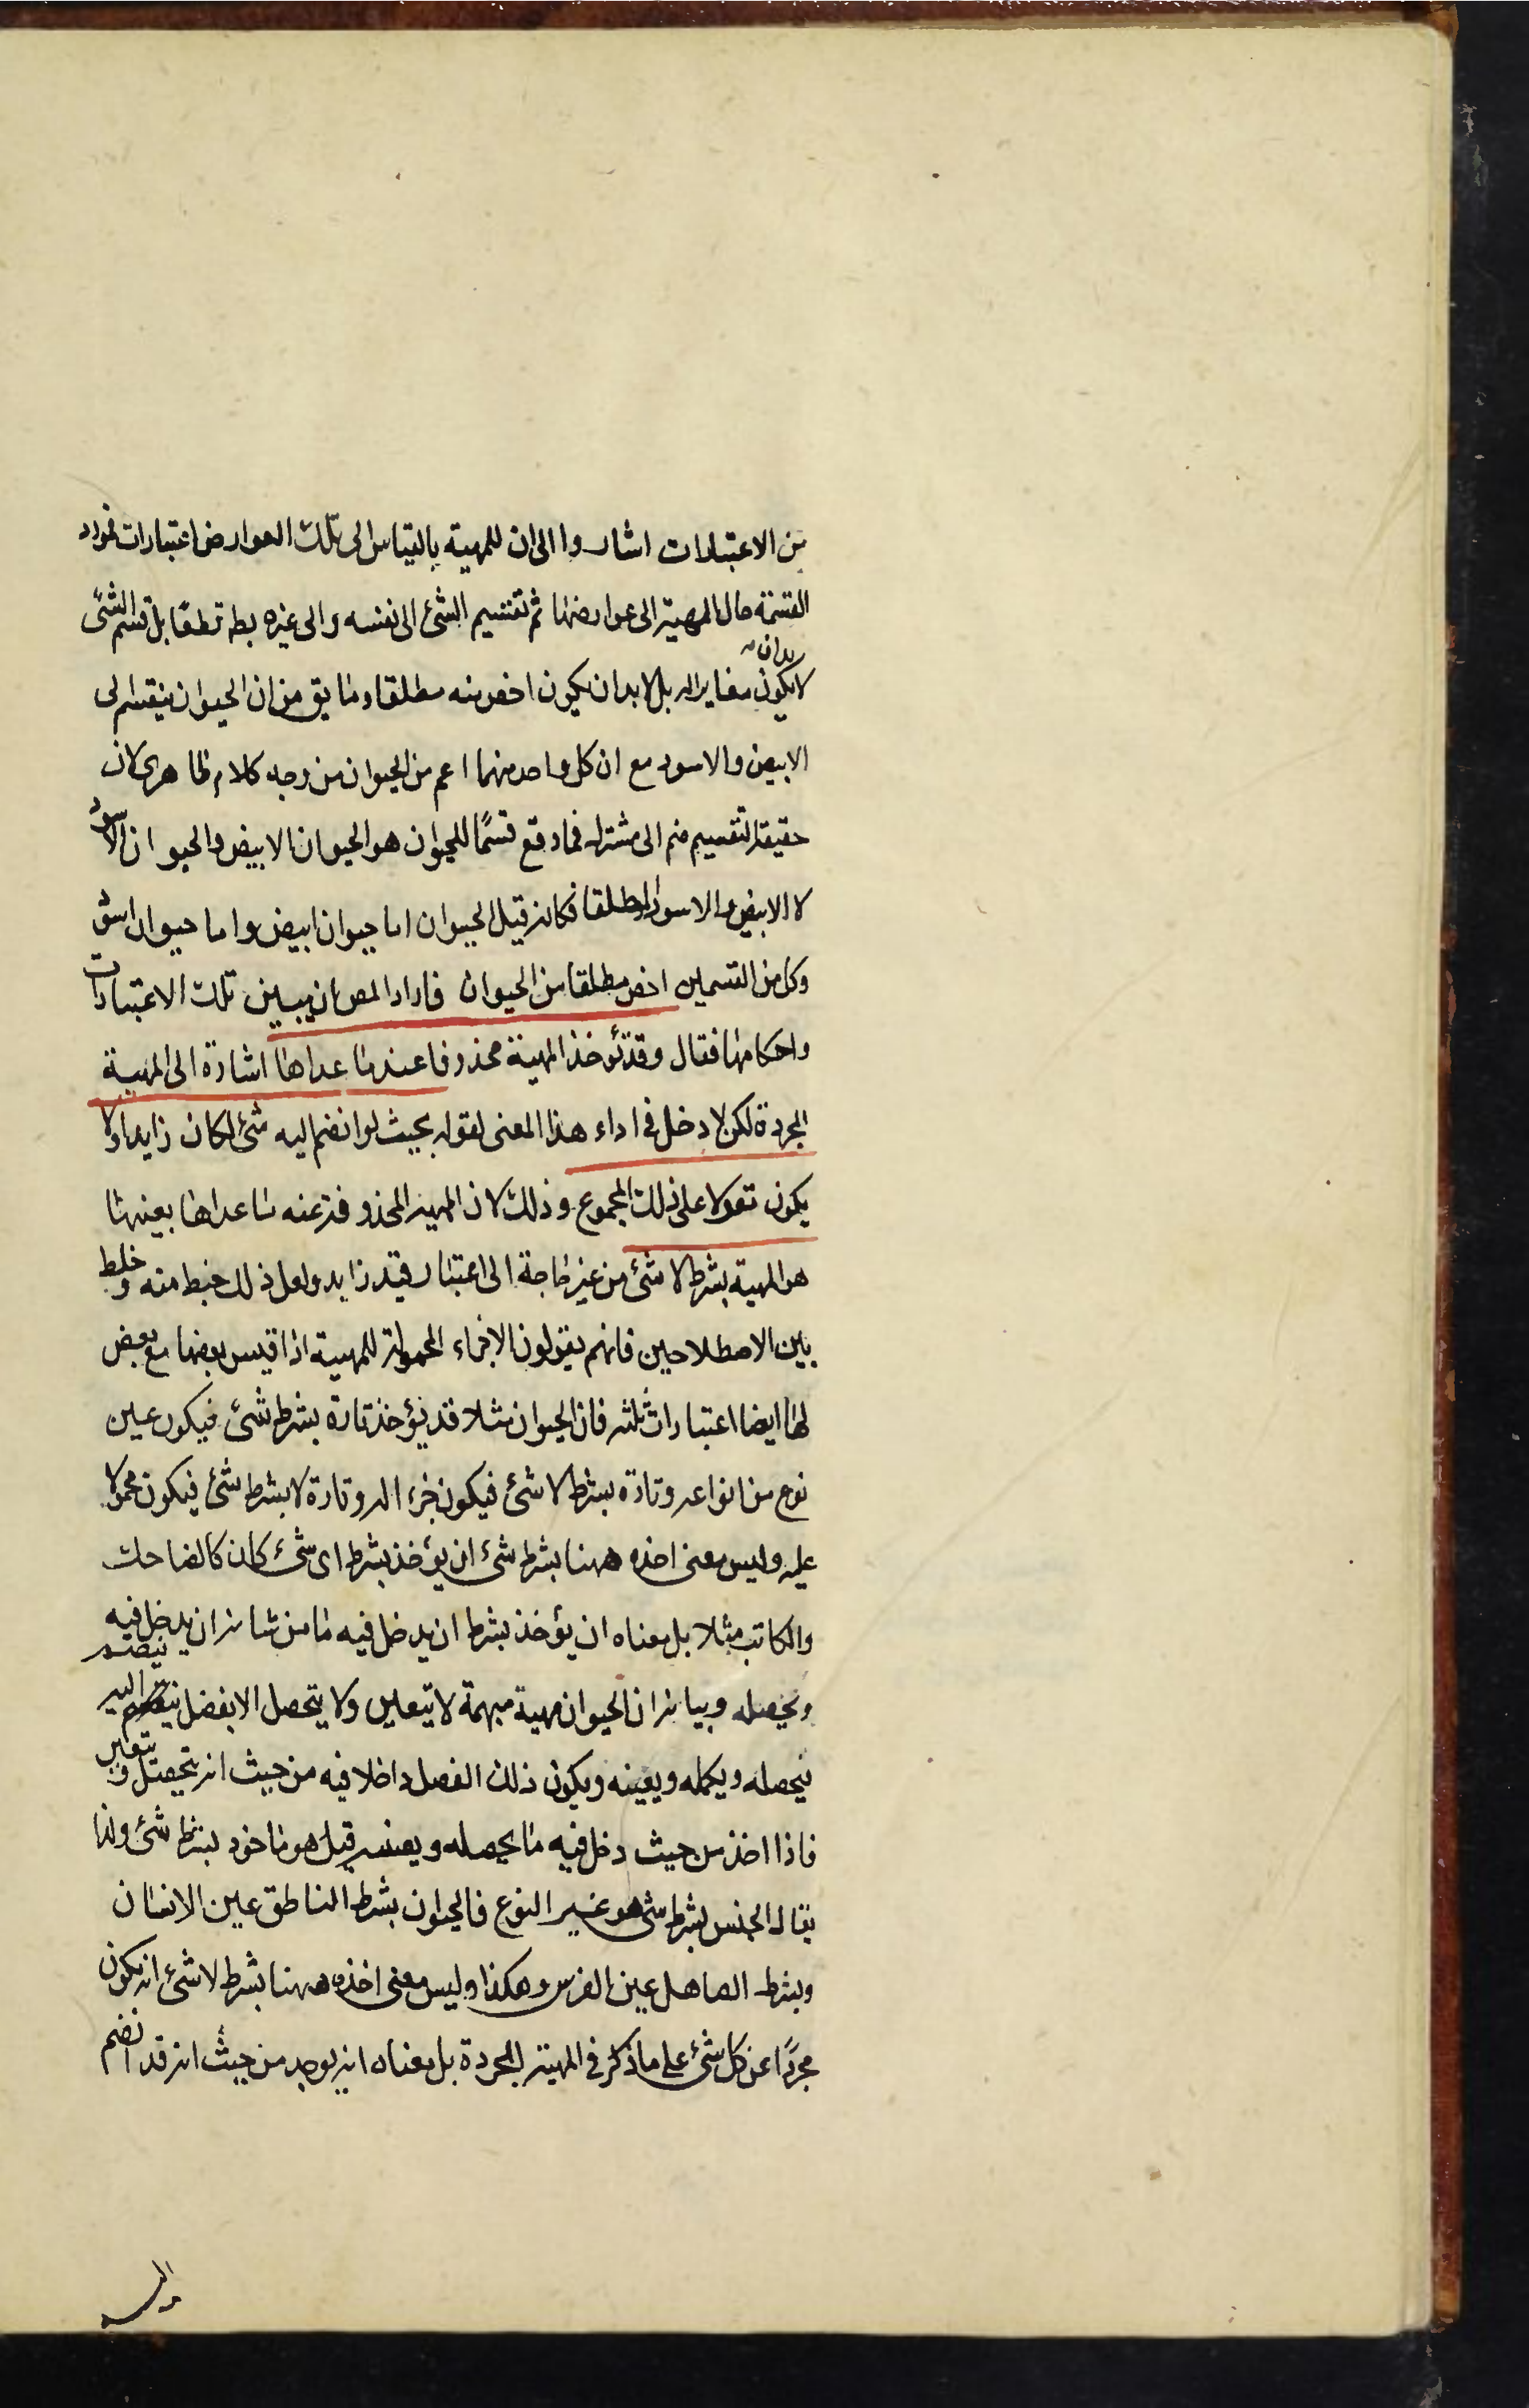 من الاعتبارات اشاروا الى ان للمهية بالقياس الى تلك العوارض اعتبارات فمورد
القسمة حال المهية الى عوارضها ثم تقسيم الشئ الى نفسه والى غيره بط قطعا بل قسم الشئ
لا بد ان
لا يكون مغايرا له بل لا بد ان يكون اخص منه مطلقا وما يق من ان الحيوان ينقسم الى
الابيض والاسود مع ان كل واحد منهما اعم من الحيوان من وجه كلام ظاهرى لان
حقيقة التقسيم ضم الى مشترك فما وقع قسمًا للحيوان هو الحيوان الابيض والحيوان الاسود
لا الابيض والاسود المطلقا فكانه قيل الحيوان اما حيوان ابيض واما حيوان اسود
وكل من القسمين اخص مطلقا من الحيوان فاراد المص ان يبين تلك الاعتبارات
واحكامها فقال وقد تؤخذ المهية محذوفا عنها ما عداها اشارة الى المهية
المجردة لكن لا دخل فى اداء هذا المعنى لقوله بحيث لو انضم اليه شئ لكان زايدا ولا
يكون مقولا على ذلك المجموع وذلك لان المهية المحذوفة عنه ما عداها بعينها
هو المهية بشرط لا شئ من غير حاجة الى اعتبار قيد زايد ولعل ذلك خبط منه وخلط
بين الاصطلاحين فانهم يقولون الاجزاء المحمولة للمهية اذا قيس بعضها مع بعض
لها ايضا اعتبارات ثلثه فان الحيوان مثلا قد يؤخذ تارة بشرط شئ فيكون عين
نوع من انواعه وتارة بشرط لا شئ فيكون جزء اله وتارة لا بشرط شئ فيكون محمولا
عليه وليس معنى اخذه ههنا بشرط شئ ان يؤخذ بشرط اى شئ كان كالضاحك
والكاتب مثلا بل معناه ان يؤخذ بشرط ان يدخل فيه ما من شانه ان يدخل فيه
ويحصله وبيانه ان الحيوان مهية مبهمة لا تتعين ولا يتحصل الا بفصل ينضم اليه
فيحصله ويكمله ويعينه ويكون ذلك الفصل داخلا فيه من حيث انه يتحصل ويتعين
فاذا اخذ من حيث دخل فيه ما يحصله ويعينه قيل هو ماخوذ بشرط شئ ولذا
يقال الجنس بشرط شئ هو عين النوع فالحيوان بشرط الناطق عين الانسان
وبشرط الصاهل عين الفرس وهكذا وليس معنى اخذه ههنا بشرط لا شئ انه يكون
مجردًا عن كل شئ على ما ذكر فى المهية المجردة بل معناه انه يوجد من حيث انه قد انضم
اليه